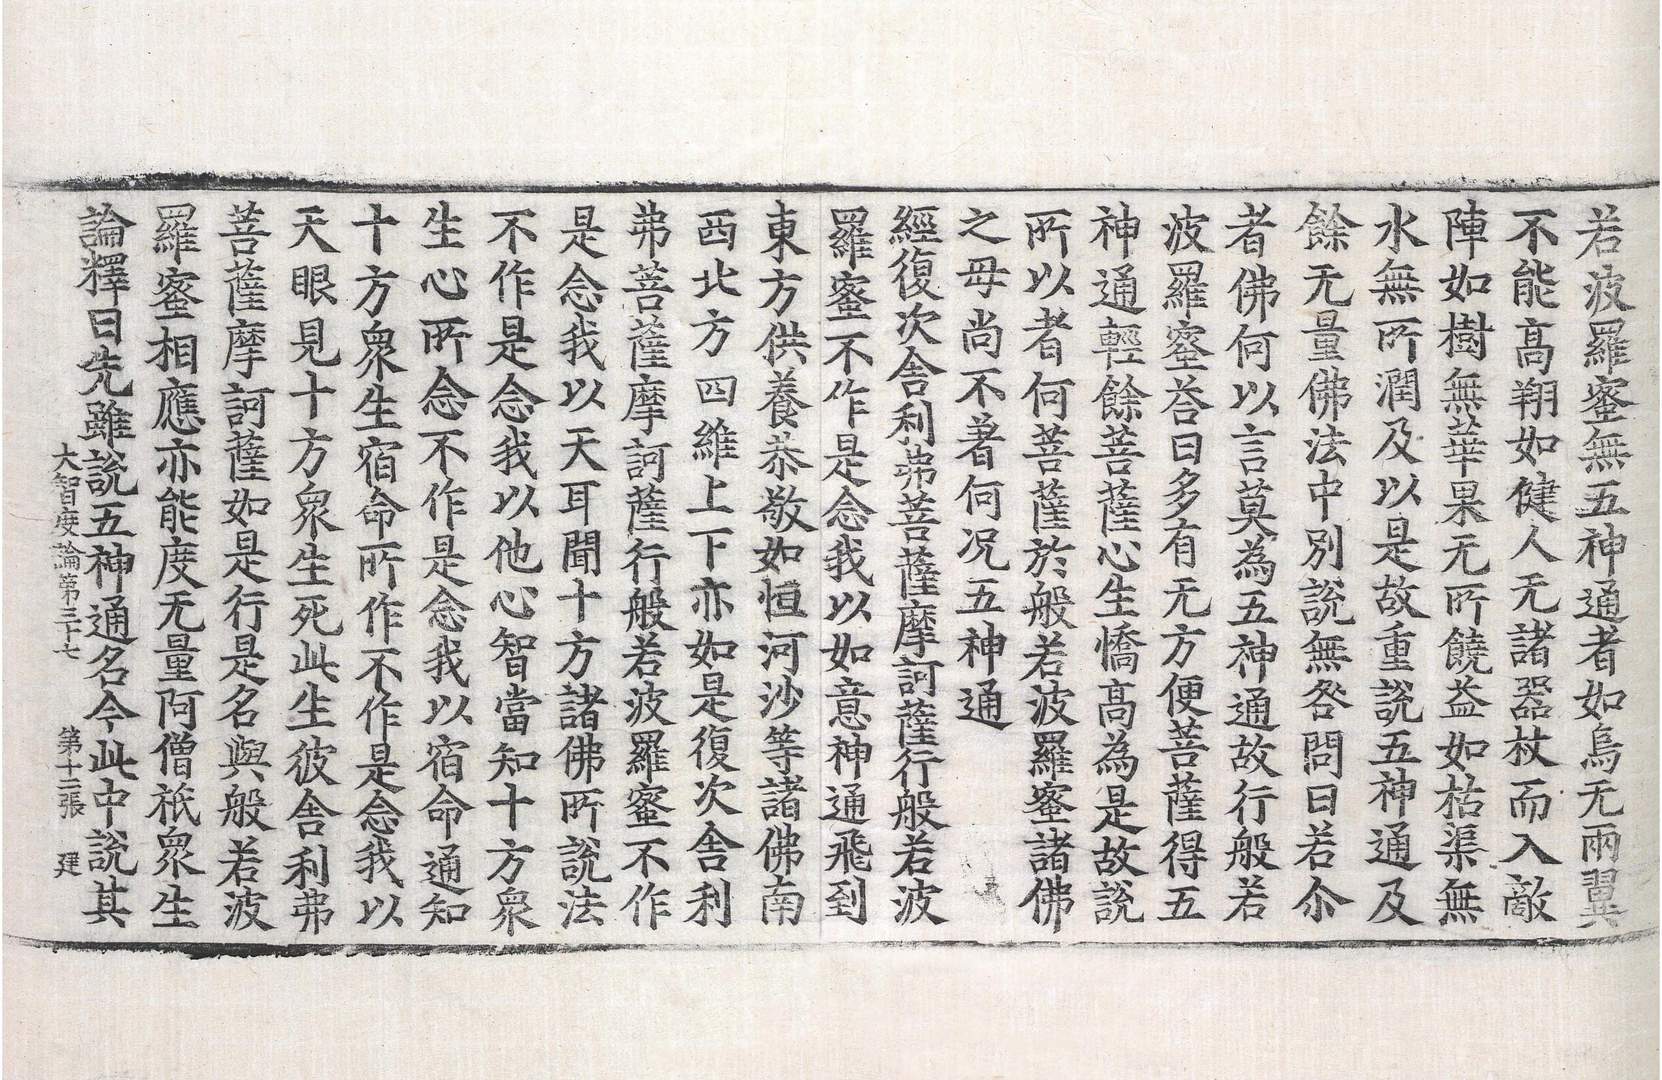 若波羅蜜無五神通者如鳥无兩翼
不能高翔如健人无諸器杖而入敵
陣如樹無華果无所饒益如枯渠無
水無所潤及以是故重說五神通及
餘无量佛法中別說無咎問曰若尒
者佛何以言莫為五神通故行般若
波羅蜜荅曰多有无方便菩薩得五
神通輕餘菩薩心生憍高為是故說
所以者何菩薩於般若波羅蜜諸佛
之母尚不著何況五神通
經復次舍利弗菩薩摩訶薩行般若波
羅蜜不作是念我以如意神通飛到
東方供養恭敬如恒河沙等諸佛南
西北方四維上下亦如是復次舍利
弗菩薩摩訶薩行般若波羅蜜不作
是念我以天耳聞十方諸佛所說法
不作是念我以他心智當知十方衆
生心所念不作是念我以宿命通知
十方衆生宿命所作不作是念我以
天眼見十方衆生死此生彼舍利弗
菩薩摩訶薩如是行是名與般若波
羅蜜相應亦能度无量阿僧祇衆生
論釋曰先雖說五神通名今此中說其
大智度論第三十七 第十二張 建